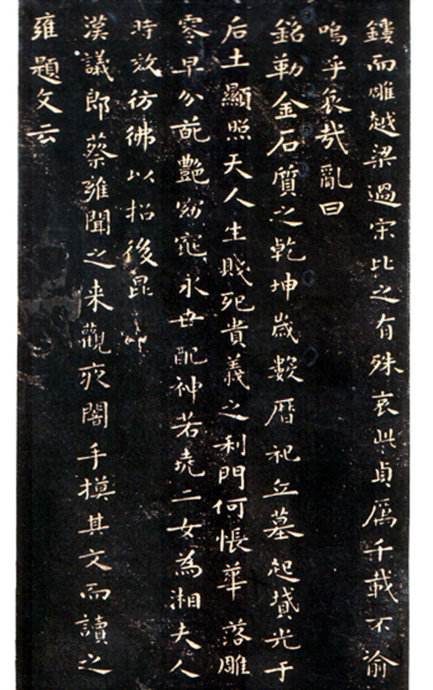 鏤而雕越梁過宋比之有殊哀此貞厲千載不渝
嗚乎哀哉亂曰
銘勒金石質之乾坤歲數曆祀丘墓起墳光于
后土顯照天人生賤死貴義之利門何悵華落雕
零早分葩艷窈窕永世配神若堯二女為湘夫人
時效彷彿以招後昆
漢議郎蔡雍聞之来觀夜闇手摸其文而讀之
雍題文云